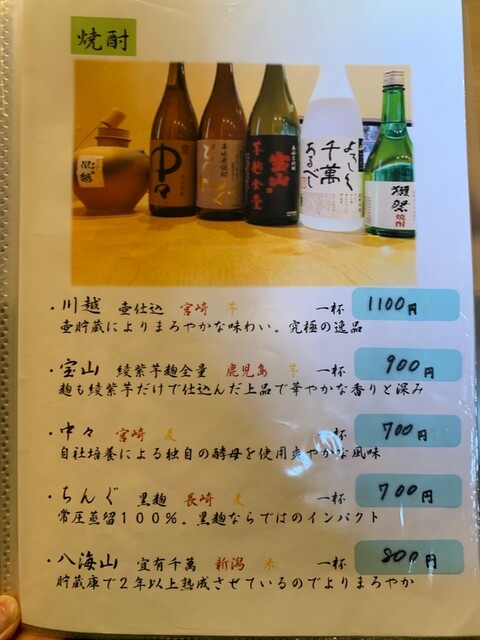 焼酎
川越
中々
ちんぐ
宝山
芋麹全量
よろしく
千萬
あるべし
獺祭
焼酎
・川越 壺仕込 宮崎 芋 一杯 1100円
壺貯蔵によりまろやかな味わい。究極の逸品
・宝山 綾紫芋麹全量 鹿児島 芋 一杯 900円
麹も綾紫芋だけで仕込んだ上品で華やかな香りと深み
・中々 宮崎 麦 一杯 700円
自社培養による独自の酵母を使用爽やかな風味
・ちんぐ 黒麹 長崎 麦 一杯 700円
常圧蒸留100%。黒麹ならではのインパクト
・八海山 宜有千萬 新潟 米 一杯 800円
貯蔵庫で2年以上熟成させているのでよりまろやか